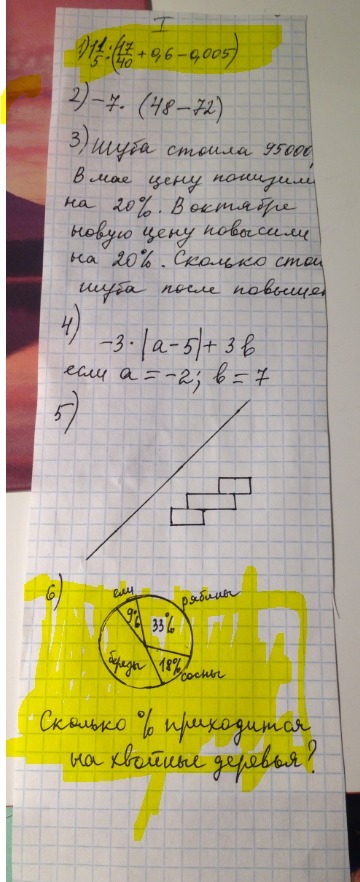 I
1) 1 1/5 : (17/40 + 0,6 - 0,005)
2) -7 · (48 - 72)
3) Шуба стоила 95000
В мае цену понизили
на 20%. В октябре
новую цену повысили
на 20%. Сколько стои
шуба после повышен
4)
-3 · |a - 5| + 3b
если a = -2; b = 7
5)
6)
ели рябины
9% 33%
березы 18% сосны
Сколько % приходится
на хвойные деревья?